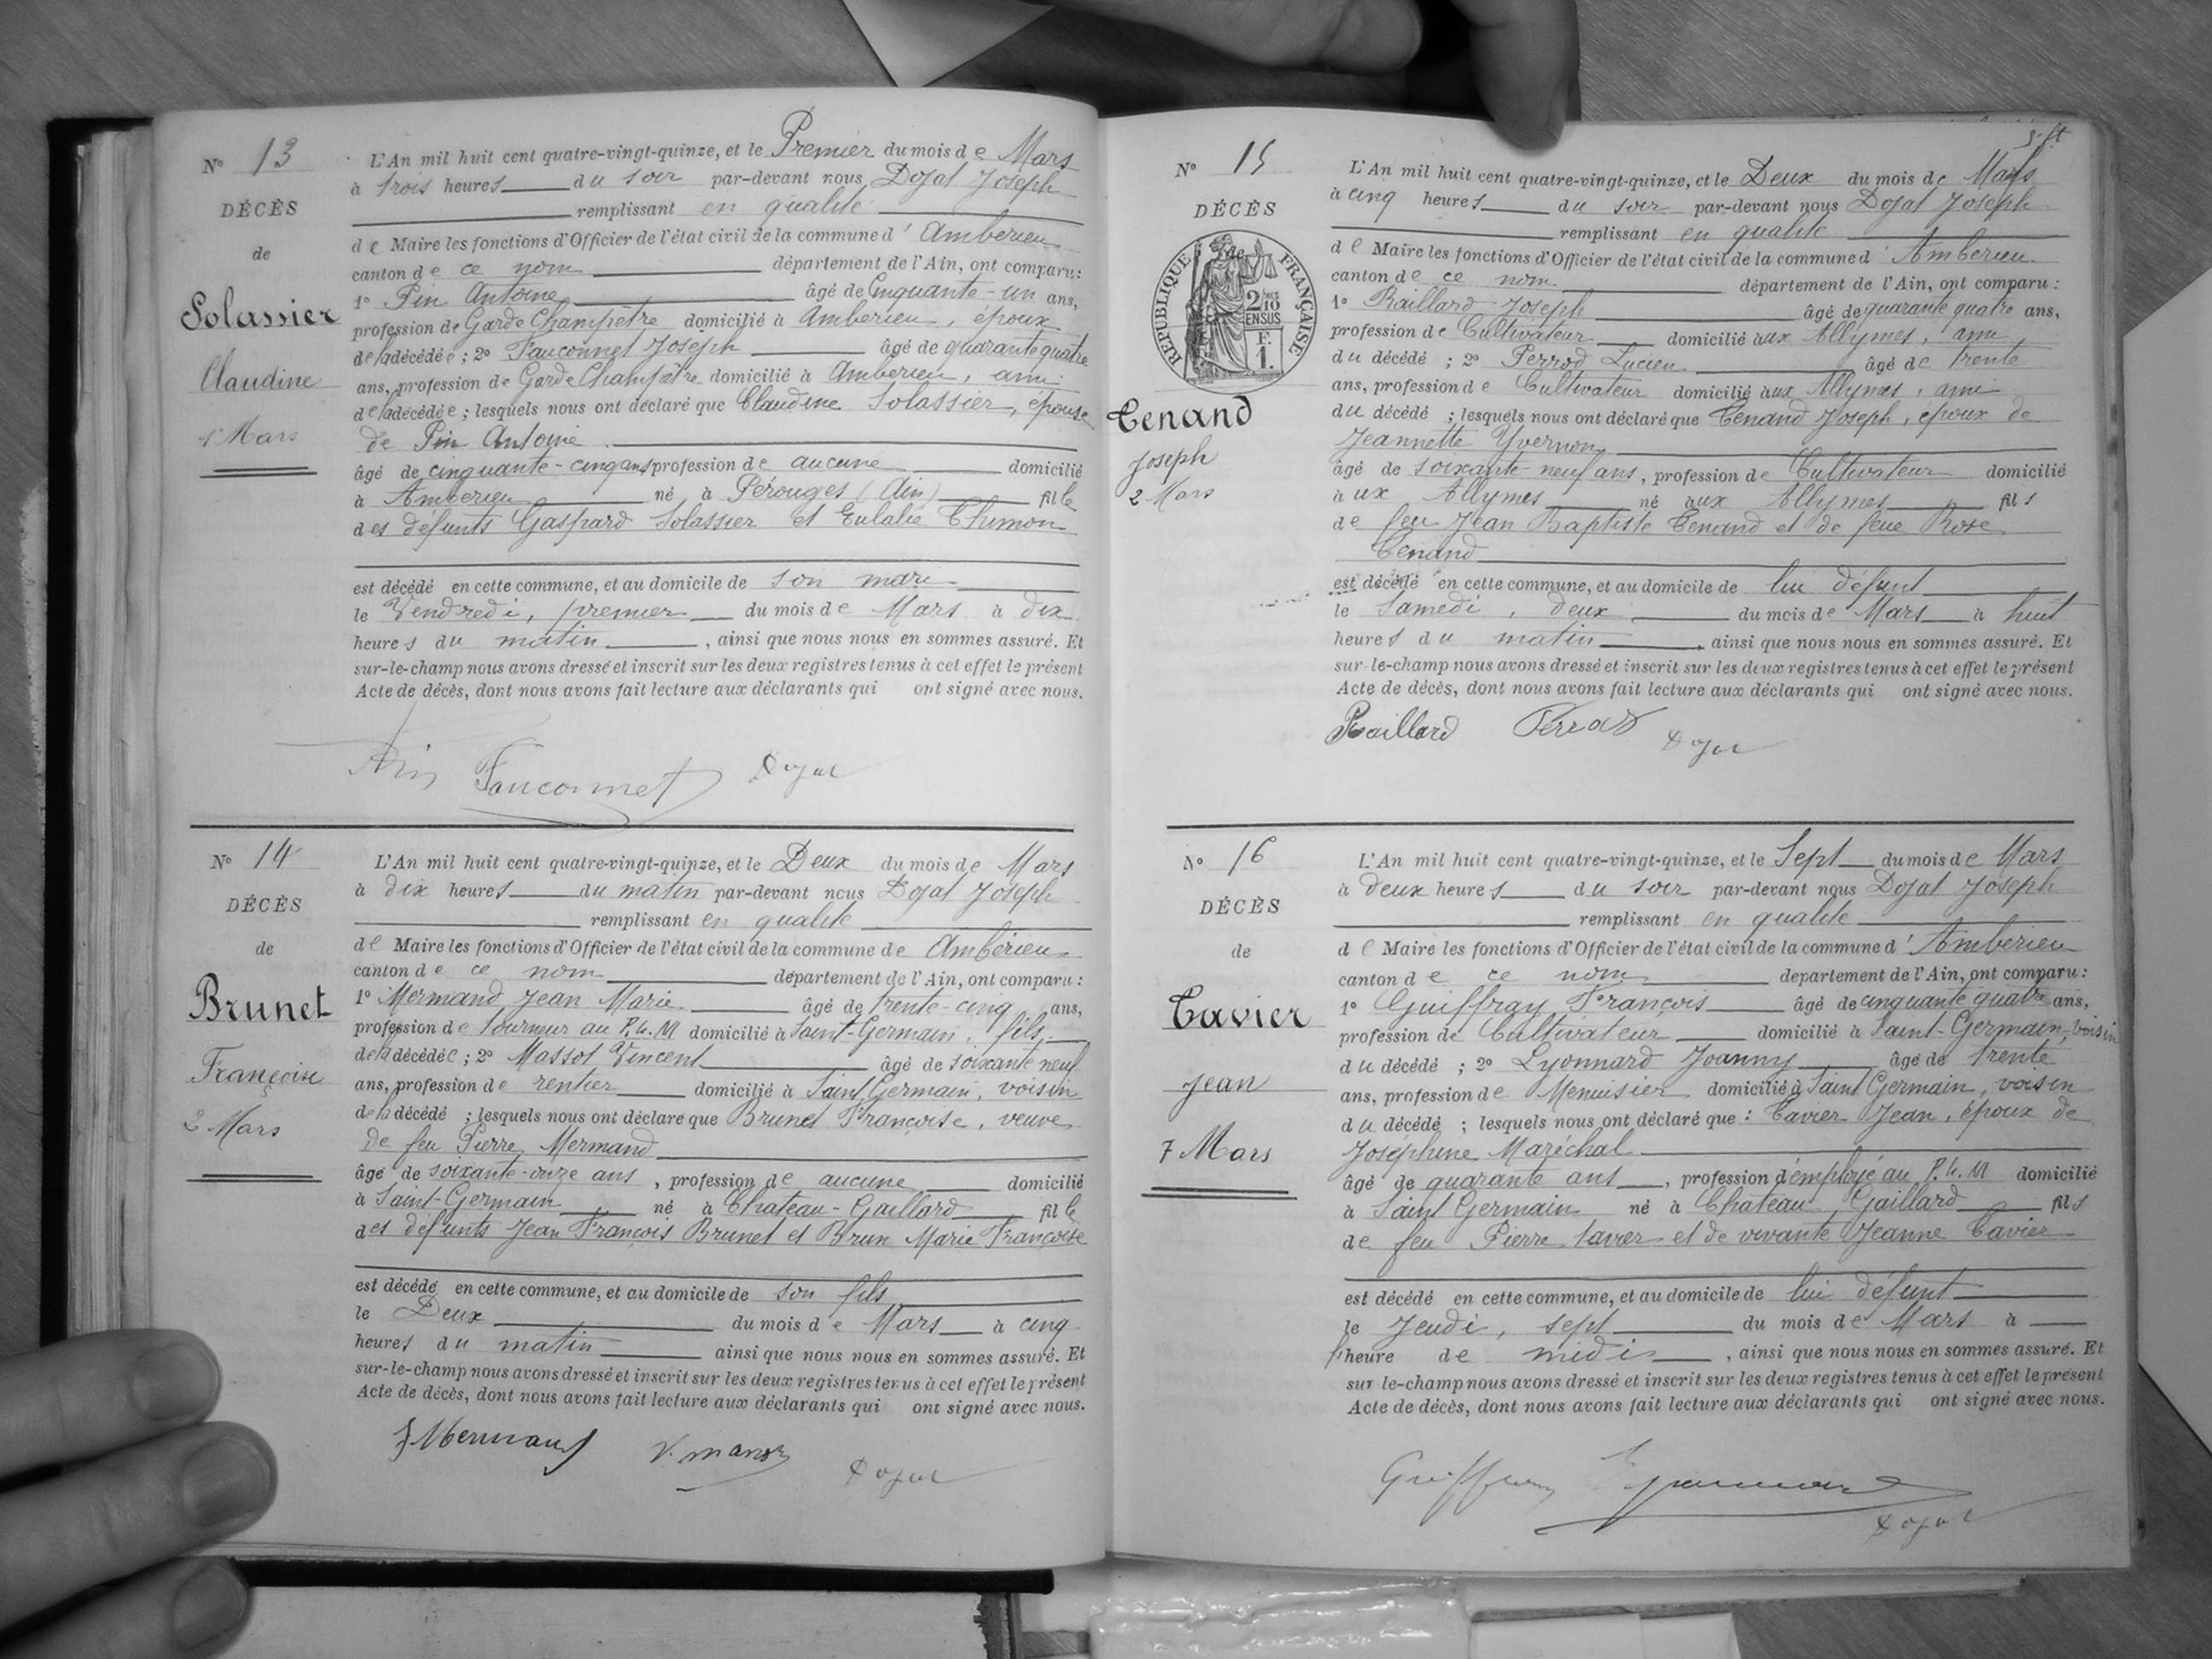 Nº 13
DÉCÈS
de
Solassier
Claudine
1er Mars
L'An mil huit cent quatre-vingt-quinze, et le Premier du mois de Mars
à trois heures du soir par-devant nous Dojat Joseph
remplissant en qualité
de Maire les fonctions d'Officier de l'état civil de la commune d'Ambérieu
canton de ce nom département de l'Ain, ont comparu:
1º Pin Antoine âgé de Cinquante-un ans,
profession de Garde Champêtre domicilié à Ambérieu, époux
de la décédée; 2º Fauconnet Joseph âgé de quarante quatre
ans, profession de Garde Champêtre domicilié à Ambérieu, ami
de la décédée; lesquels nous ont déclaré que Claudine Solassier, épouse
de Pin Antoine
âgé de cinquante-cinq ans profession de aucune domicilié
à Ambérieu né à Pérouges (Ain) fille
des défunts Gaspard Solassier et Eulalie Thimon
est décédé en cette commune, et au domicile de son mari
le Vendredi, premier du mois de Mars à dix
heures du matin, ainsi que nous nous en sommes assuré. Et
sur-le-champ nous avons dressé et inscrit sur les deux registres tenus à cet effet le présent
Acte de décès, dont nous avons fait lecture aux déclarants qui ont signé avec nous.
Pin Fauconnet Dojat
Nº 14
DÉCÈS
de
Brunet
Françoise
2 Mars
L'An mil huit cent quatre-vingt-quinze, et le Deux du mois de Mars
à dix heures du matin par-devant nous Dojat Joseph
remplissant en qualité
de Maire les fonctions d'Officier de l'état civil de la commune de Ambérieu
canton de ce nom département de l'Ain, ont comparu:
1º Mermand Jean Marie âgé de trente-cinq ans,
profession de tourneur au P.L.M domicilié à Saint-Germain, fils
de la décédée; 2º Massot Vincent âgé de soixante neuf
ans, profession de rentier domicilié à Saint Germain, voisin
de la décédé; lesquels nous ont déclaré que Brunet Françoise, veuve
de feu Pierre Mermand
âgé de soixante-onze ans, profession de aucune domicilié
à Saint-Germain né à Chateau-Gaillard fille
des défunts Jean François Brunet et Brun Marie Françoise
est décédé en cette commune, et au domicile de son fils
le Deux du mois de Mars à cinq
heures du matin ainsi que nous nous en sommes assuré. Et
sur-le-champ nous avons dressé et inscrit sur les deux registres tenus à cet effet le présent
Acte de décès, dont nous avons fait lecture aux déclarants qui ont signé avec nous.
J Mermand Dojat
Nº 15
DÉCÈS
de
RÉPUBLIQUE FRANÇAISE
2/10 EN SUS
F. 1.
Tenand
Joseph
2 Mars
L'An mil huit cent quatre-vingt-quinze, et le Deux du mois de Mars
à cinq heures du soir par-devant nous Dojat Joseph
remplissant en qualité
de Maire les fonctions d'Officier de l'état civil de la commune d'Ambérieu
canton de ce nom département de l'Ain, ont comparu:
1º Raillard Joseph âgé de quarante quatre ans,
profession de Cultivateur domicilié aux Allymes, ami
du décédé; 2º Perrod Lucien âgé de trente
ans, profession de Cultivateur domicilié aux Allymes, ami
du décédé; lesquels nous ont déclaré que Tenand Joseph, époux de
Jeannette Yvernon
âgé de soixante-neuf ans, profession de Cultivateur domicilié
à ux Allymes né aux Allymes fils
de feu Jean Baptiste Tenand et de feue Rose
Tenand
est décédé en cette commune, et au domicile de lui défunt
le Samedi, deux du mois de Mars à huit
heures du matin, ainsi que nous nous en sommes assuré. Et
sur-le-champ nous avons dressé et inscrit sur les deux registres tenus à cet effet le présent
Acte de décès, dont nous avons fait lecture aux déclarants qui ont signé avec nous.
Raillard Perrod Dojat
Nº 16
DÉCÈS
de
Tavier
Jean
7 Mars
L'An mil huit cent quatre-vingt-quinze, et le Sept du mois de Mars
à deux heures du soir par-devant nous Dojat Joseph
remplissant en qualité
de Maire les fonctions d'Officier de l'état civil de la commune d'Ambérieu
canton de ce nom département de l'Ain, ont comparu:
1º Guiffray François âgé de cinquante quatre ans,
profession de Cultivateur domicilié à Saint-Germain, voisin
du décédé; 2º Lyonnard Joanny âgé de trente
ans, profession de Menuisier domicilié à Saint Germain, voisin
du décédé; lesquels nous ont déclaré que: Tavier Jean, époux de
Joséphine Maréchal
âgé de quarante ans, profession d'employé au P.L.M domicilié
à Saint Germain né à Chateau Gaillard fils
de feu Pierre Tavier et de vivante Jeanne Tavier
est décédé en cette commune, et au domicile de lui défunt
le Jeudi, sept du mois de Mars à
l'heure de midi, ainsi que nous nous en sommes assuré. Et
sur le-champ nous avons dressé et inscrit sur les deux registres tenus à cet effet le présent
Acte de décès, dont nous avons fait lecture aux déclarants qui ont signé avec nous.
Guiffray Lyonnard Dojat